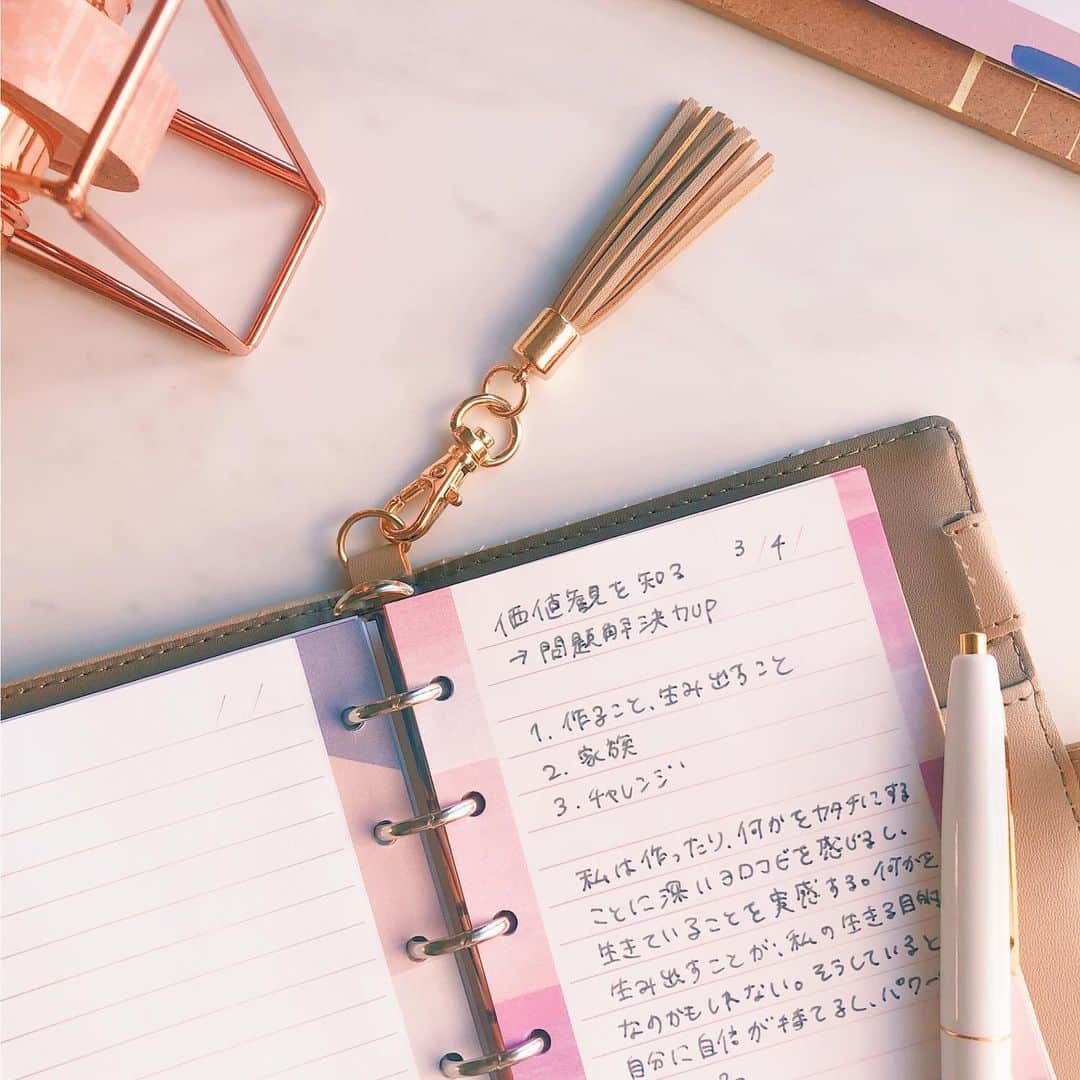 3/4/
価値観を知る
→問題解決力UP
1. 作ること、生み出すこと
2. 家族
3. チャレンジ
私は作ったり、何かをカタチにする
ことに深いヨロコビを感じるし、
生きていることを実感する。何かを
生み出すことが、私の生きる目的
なのかもしれない。そうしていると
自分に自信が持てるし、パワー